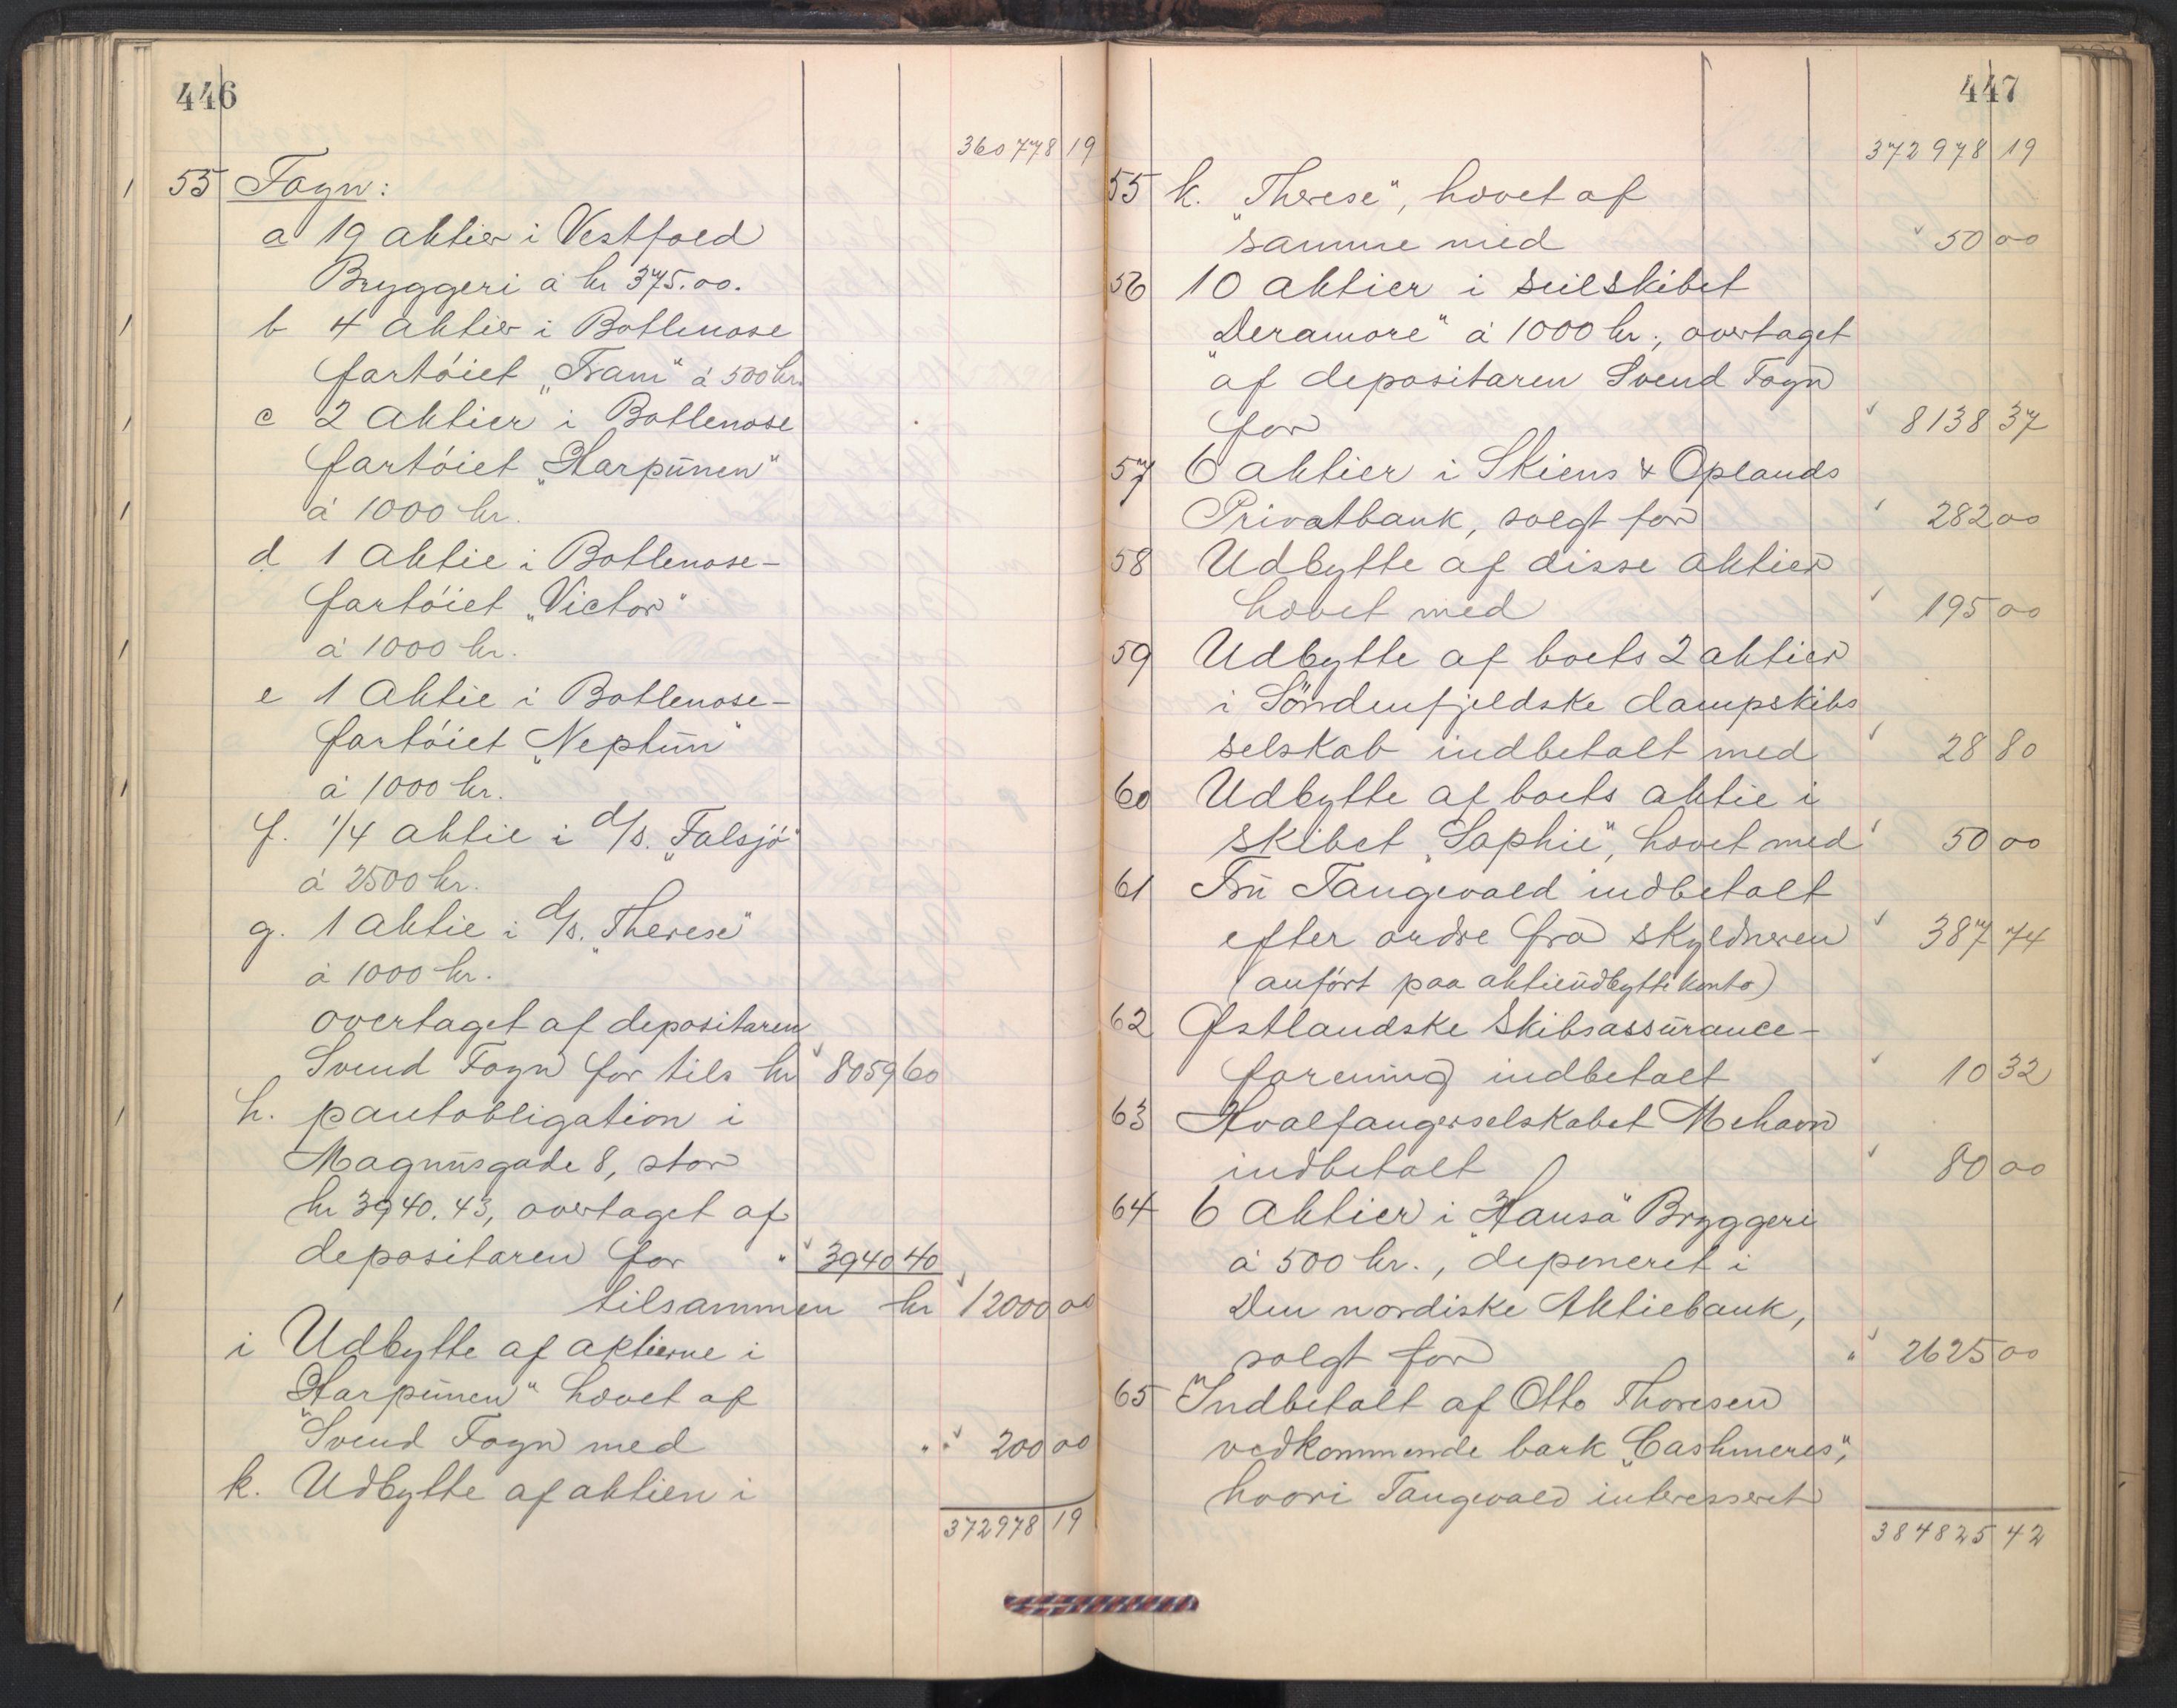 446
360778 19
55 Foyn:
a 19 aktier i Vestfold
Bryggeri á kr 375.00.
b 4 aktier i Bottlenose
fartóiet „Fram“ á 500 kr.
c 2 aktier i Bottlenose
fartóiet „Harpunen“
á 1000 kr.
d 1 aktie i Bottlenose-
fartóiet „Victor“
á 1000 kr.
e 1 aktie i Bottlenose-
fartóiet „Neptun“
á 1000 kr.
f. 1/4 aktie i d/s. „Falsjó“
á 2500 kr.
g. 1 aktie i d/s. „Therese“
á 1000 kr.
overtaget af depositaren
Svend Foyn for tils kr 8059 60
h. pantobligation i
Magnusgade 8, stor
kr 3940.43, overtaget af
depositaren for " 3940 40
tilsammen kr 12000 00
i Udbytte af aktierne i
„Harpunen“ hævet af
Svend Foyn med " " 200 00
k. Udbytte af aktien i
372978 19
447
372978 19
55 k. „Therese“, hævet af
samme med 50 00
56 10 aktier i seilskibet
„Deramore“ á 1000 kr., overtaget
af depositaren Svend Foyn
for 8138 37
57 6 aktier i Skiens & Oplands
Privatbank, solgt for 282 00
58 Udbytte af disse aktier
hævet med 195 00
59 Udbytte af boets 2 aktier
i Söndenfjeldske dampskibs
selskab indbetalt med 28 80
60 Udbytte af boets aktie i
skibet „Sophie“, hævet med 50 00
61 Fru Tangevald indbetalt
efter ordre fra skyldneren 387 74
(anfört paa aktieudbytte konto)
62 Østlandske Skibsassurance-
forening indbetalt 10 32
63 Hvalfangerselskabet Mehavn
indbetalt 80 00
64 6 aktier i „Hansa“ Bryggeri
á 500 kr., deponeret i
Den nordiske Aktiebank,
solgt for " 2625 00
65 Indbetalt af Otto Thoresen
vedkommende bark „Cashmeres“,
hvori Tangevald interesseret
384825 42